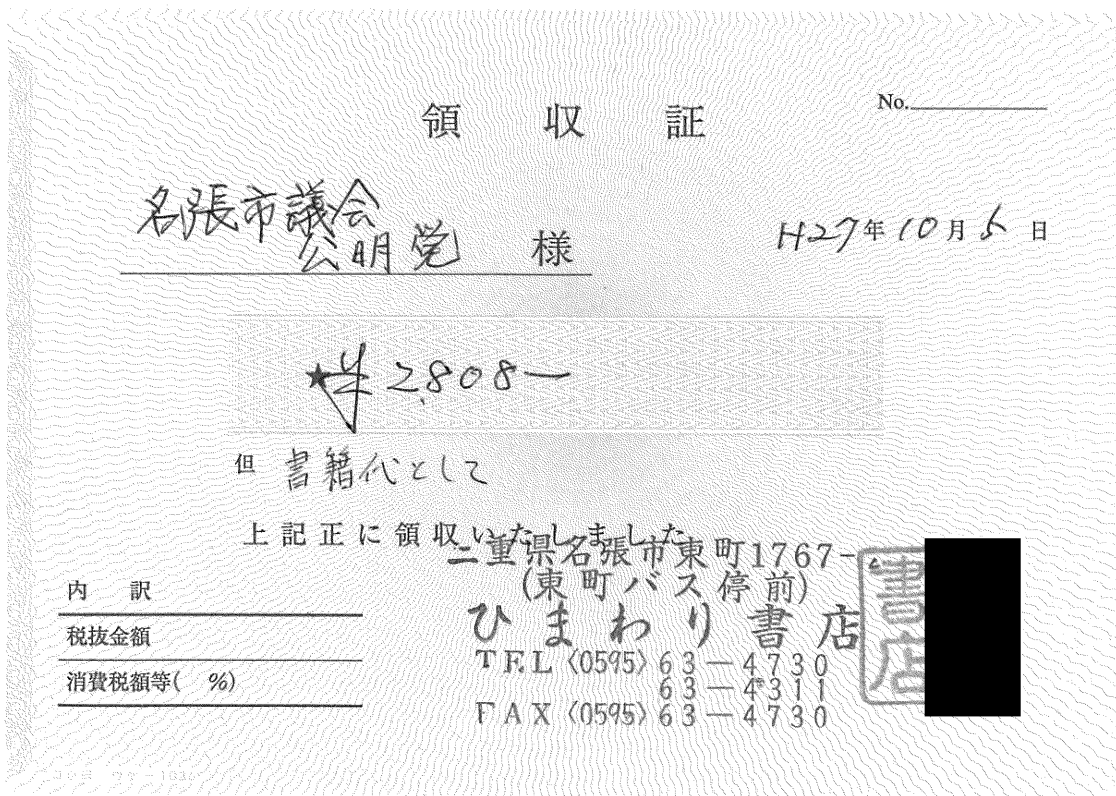 領収証
No.
名張市議会
公明党 様
H27年10月5日
★¥2,808-
但 書籍代として
上記正に領収いたしました
三重県名張市東町1767-
(東町バス停前)
ひまわり書店
TEL〈0595〉63-4730
63-4311
FAX〈0595〉63-4730
書店
内訳
税抜金額
消費税額等( %)